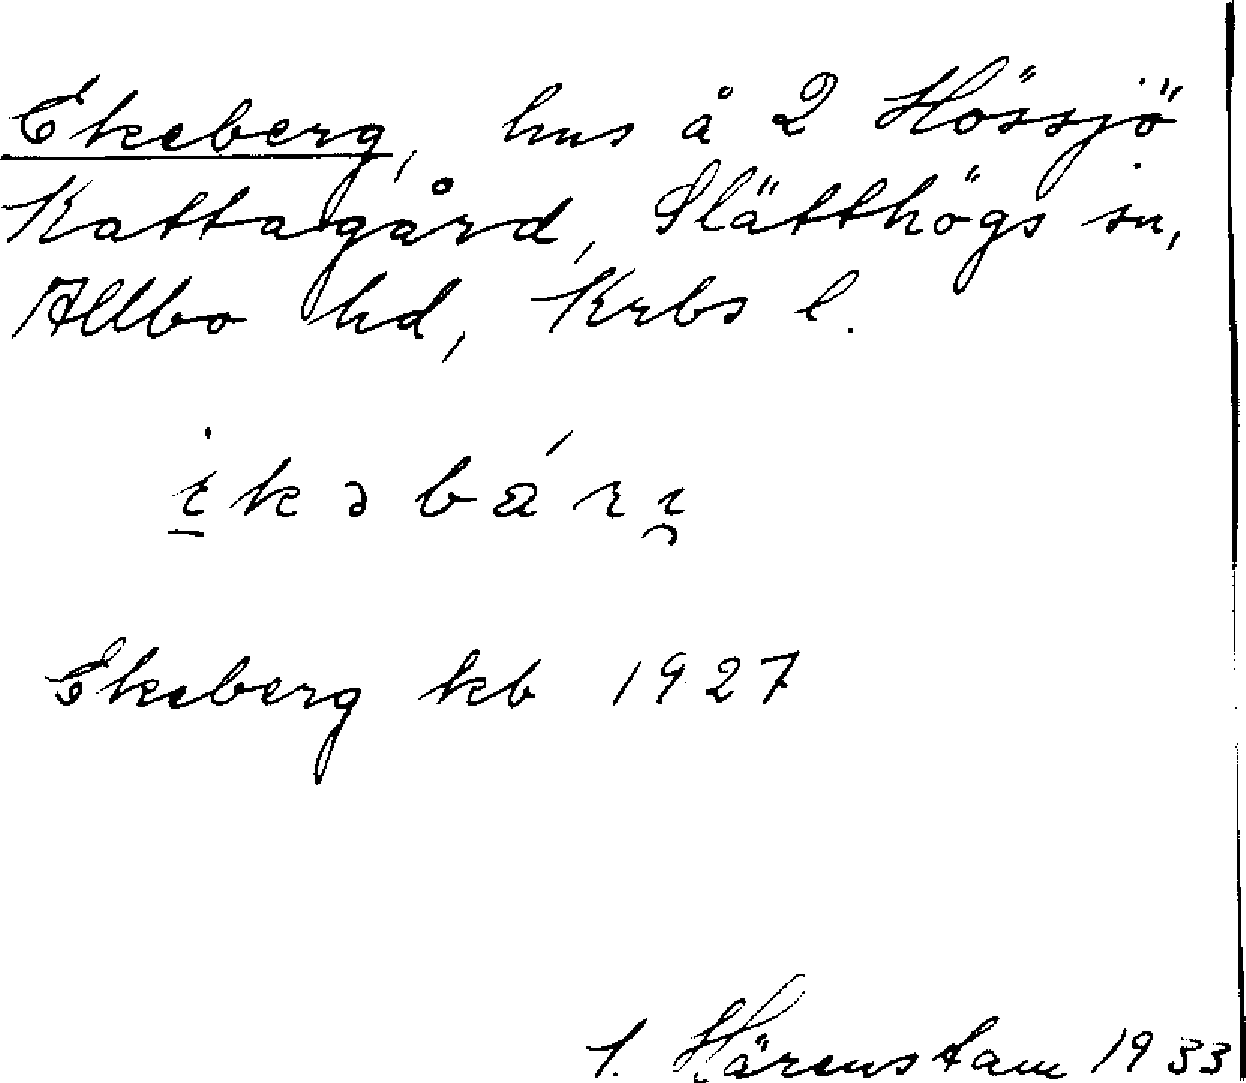 Ekeberg, hus å 2 Hössjö
Kattagård, Slätthögs sn,
Allbo hd, Krbs l.
Ekeberg kb 1927
Härenstam 1933